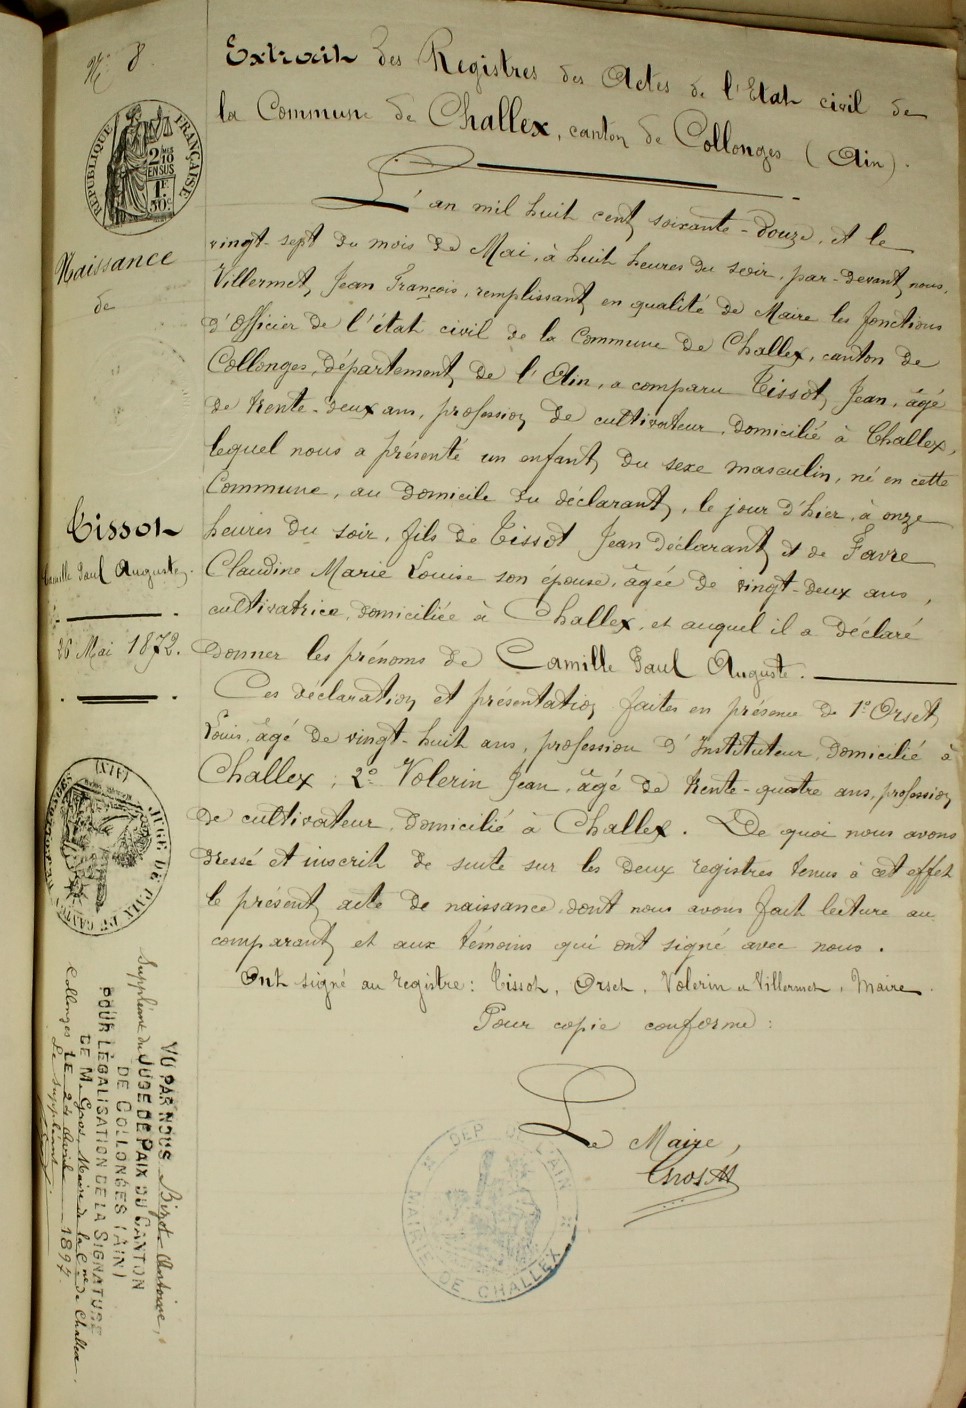 N° 8.
RÉPUBLIQUE FRANÇAISE
2/10 EN SUS
1F 50c
Naissance
de
Tissot
Camille Paul Auguste.
26 Mai 1872.
Extrait des Registres des Actes de l'Etat civil de
la Commune de Challex, canton de Collonges (Ain).
L'an mil huit cent soixante-douze, et le
vingt-sept du mois de Mai, à huit heures du soir, par-devant nous,
Villermet, Jean François, remplissant en qualité de Maire les fonctions
d'Officier de l'état civil de la Commune de Challex, canton de
Collonges, département de l'Ain, a comparu Tissot, Jean, âgé
de trente-deux ans, profession de cultivateur, domicilié à Challex,
lequel nous a présenté un enfant du sexe masculin, né en cette
Commune, au domicile du déclarant, le jour d'hier, à onze
heures du soir, fils de Tissot Jean déclarant et de Favre
Claudine Marie Louise son épouse, âgée de vingt-deux ans,
cultivatrice, domiciliée à Challex, et auquel il a déclaré
donner les prénoms de Camille Paul Auguste.
Ces déclaration et présentation faites en présence de 1° Orset,
Louis, âgé de vingt-huit ans, profession d'Instituteur, domicilié à
Challex; 2° Volerin Jean, âgé de trente-quatre ans, profession
de cultivateur, domicilié à Challex. De quoi nous avons
dressé et inscrit de suite sur les deux registres tenus à cet effet
le présent acte de naissance, dont nous avons fait lecture au
comparant et aux témoins qui ont signé avec nous.
Ont signé au registre: Tissot, Orset, Volerin et Villermet, Maire.
Pour copie conforme:
Le Maire,
Gros M
DEP. DE L'AIN
MAIRIE DE CHALLEX
JUGE DE PAIX
VU PAR NOUS Bizot Antoine,
Suppléant du JUGE DE PAIX DU CANTON
DE COLLONGES (AIN)
POUR LÉGALISATION DE LA SIGNATURE
DE M. Gros, Maire de la Cne de Challex.
Collonges LE 24 Avril 1897.
Le Suppléant